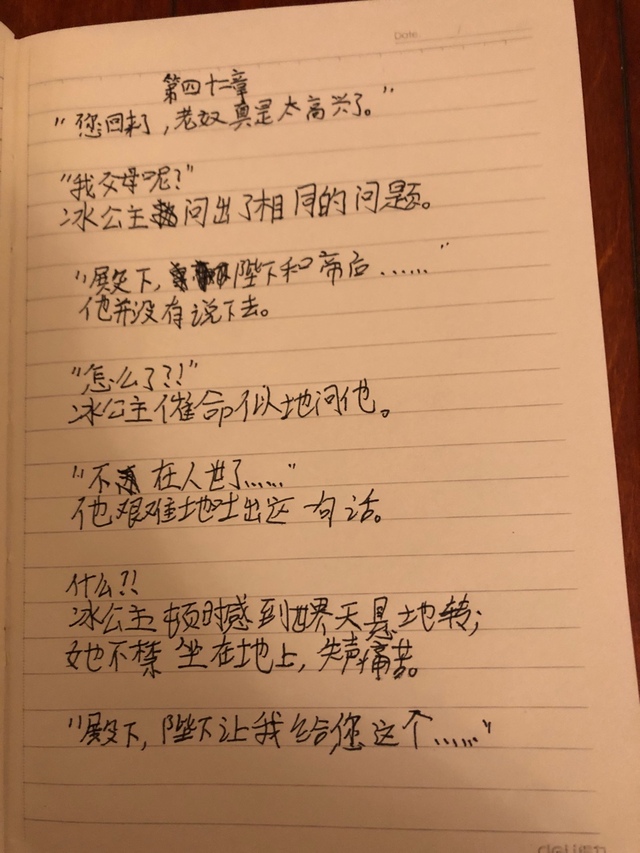 Date
第四十二章
“您回来了，老奴真是太高兴了。”
“我父母呢？”
冰公主问出了相同的问题。
“殿下，陛下和帝后……”
他并没有说下去。
“怎么了？！”
冰公主催命似地问他。
“不在人世了……”
他艰难地吐出这一句话。
什么？！
冰公主顿时感到世界天悬地转；
她不禁坐在地上，失声痛苦。
“殿下，陛下让我给您这个……”
deli得力